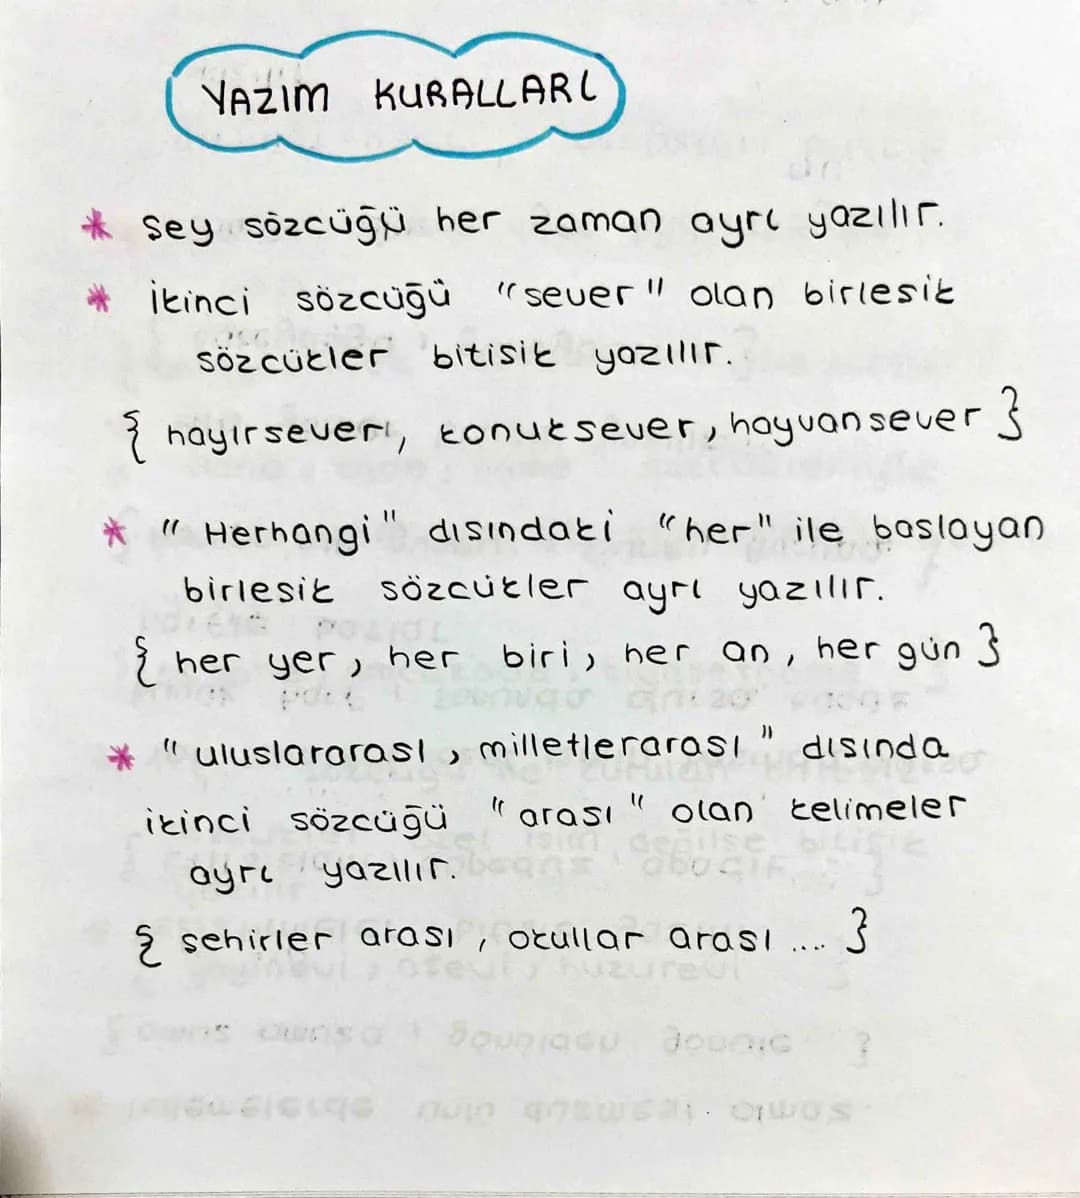 YAZIM KURALLARI
* Sey sözcüğü her zaman ayrı yazılır.
* İkinci sözcüğü "sever" olan birlesik
sözcükler bitisik yazılır.
{ hayırsever, konuksever, hayvansever }
* "Herhangi" dısındaki "her" ile baslayan
birlesik sözcükler ayrı yazılır.
{ her yer, her biri, her an, her gün }
* "uluslararası, milletlerarası" dısında
ikinci sözcüğü "arası" olan kelimeler
ayrı yazılır.
{ sehirler arası, okullar arası .... }